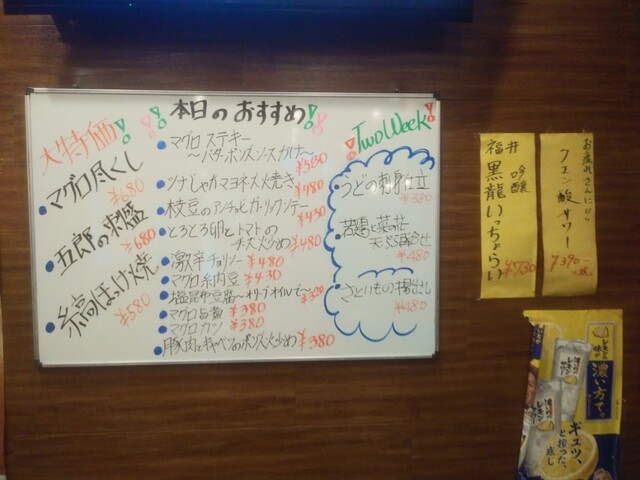 本日のおすすめ!!
大特価!!
マグロ尽くし
¥680
五郎の刺盛
¥680
縞ほっけ焼
¥580
マグロステーキ
¥580
ツナじゃがマヨネーズ焼き
¥480
枝豆のアンチョビガーリックソテー
¥430
とろとろ卵とトマトの
チーズ炒め ¥480
激辛チョリソー ¥480
マグロ納豆 ¥430
塩昆布豆腐〜オリーブオイルで〜
マグロ旨煮 ¥380
マグロカツ ¥380
豚肉とキャベツのポン酢炒め ¥380
!Two Week!
うどの刺身仕立
¥380
¥480
さといもの揚出し
¥480
福井
吟醸
黒龍いっちょらい
¥730
お疲れさんに!!
クエン酸サワー
¥390
レモンサワー
濃い方で。
ギュッ、
と搾った、